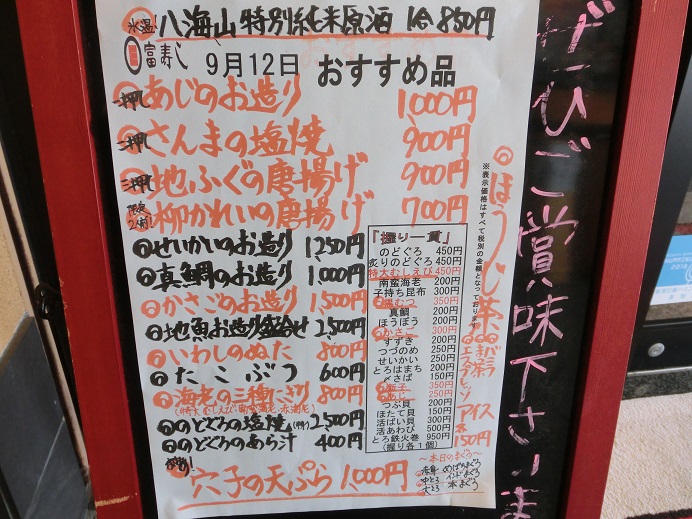 氷温! 八海山 特別純米原酒 1合 850円
富寿し 9月12日 おすすめ品
一押し あじのお造り 1,000円
二押し さんまの塩焼 900円
三押し 地ふぐの唐揚げ 900円
限定2個! 柳かれいの唐揚げ 700円
せいかいのお造り 1,250円
真鯛のお造り 1,000円
かさごのお造り 1,500円
地魚お造り盛合せ 2,500円
いわしのぬた 800円
たこぶつ 600円
海老の三種にぎり 800円
(特大むしえび・南蛮海老・赤海老)
のどぐろの塩焼 2,500円
のどぐろのあら汁 400円
穴子の天ぷら 1,000円
「握り一貫」
のどぐろ 450円
炙りのどぐろ 450円
特大むしえび 450円
南蛮海老 200円
子持ち昆布 300円
350円
真鯛 200円
ほうぼう 200円
かさご 300円
すずき 200円
つづのめ 250円
せいかい 250円
とろはまち 200円
〆さば 150円
350円
あじ 250円
つぶ貝 200円
ほたて貝 150円
活ばい貝 300円
活あわび 500円
とろ鉄火巻 950円
(握り各1個)
～本日のまぐろ～
赤身 めばちまぐろ
中とろ インドまぐろ
大とろ 本まぐろ
※表示価格はすべて税別の金額となっております
ほうじ茶
バニラ
抹茶
エスプレッソ
アイス
各150円
ぜひご賞味下さいま